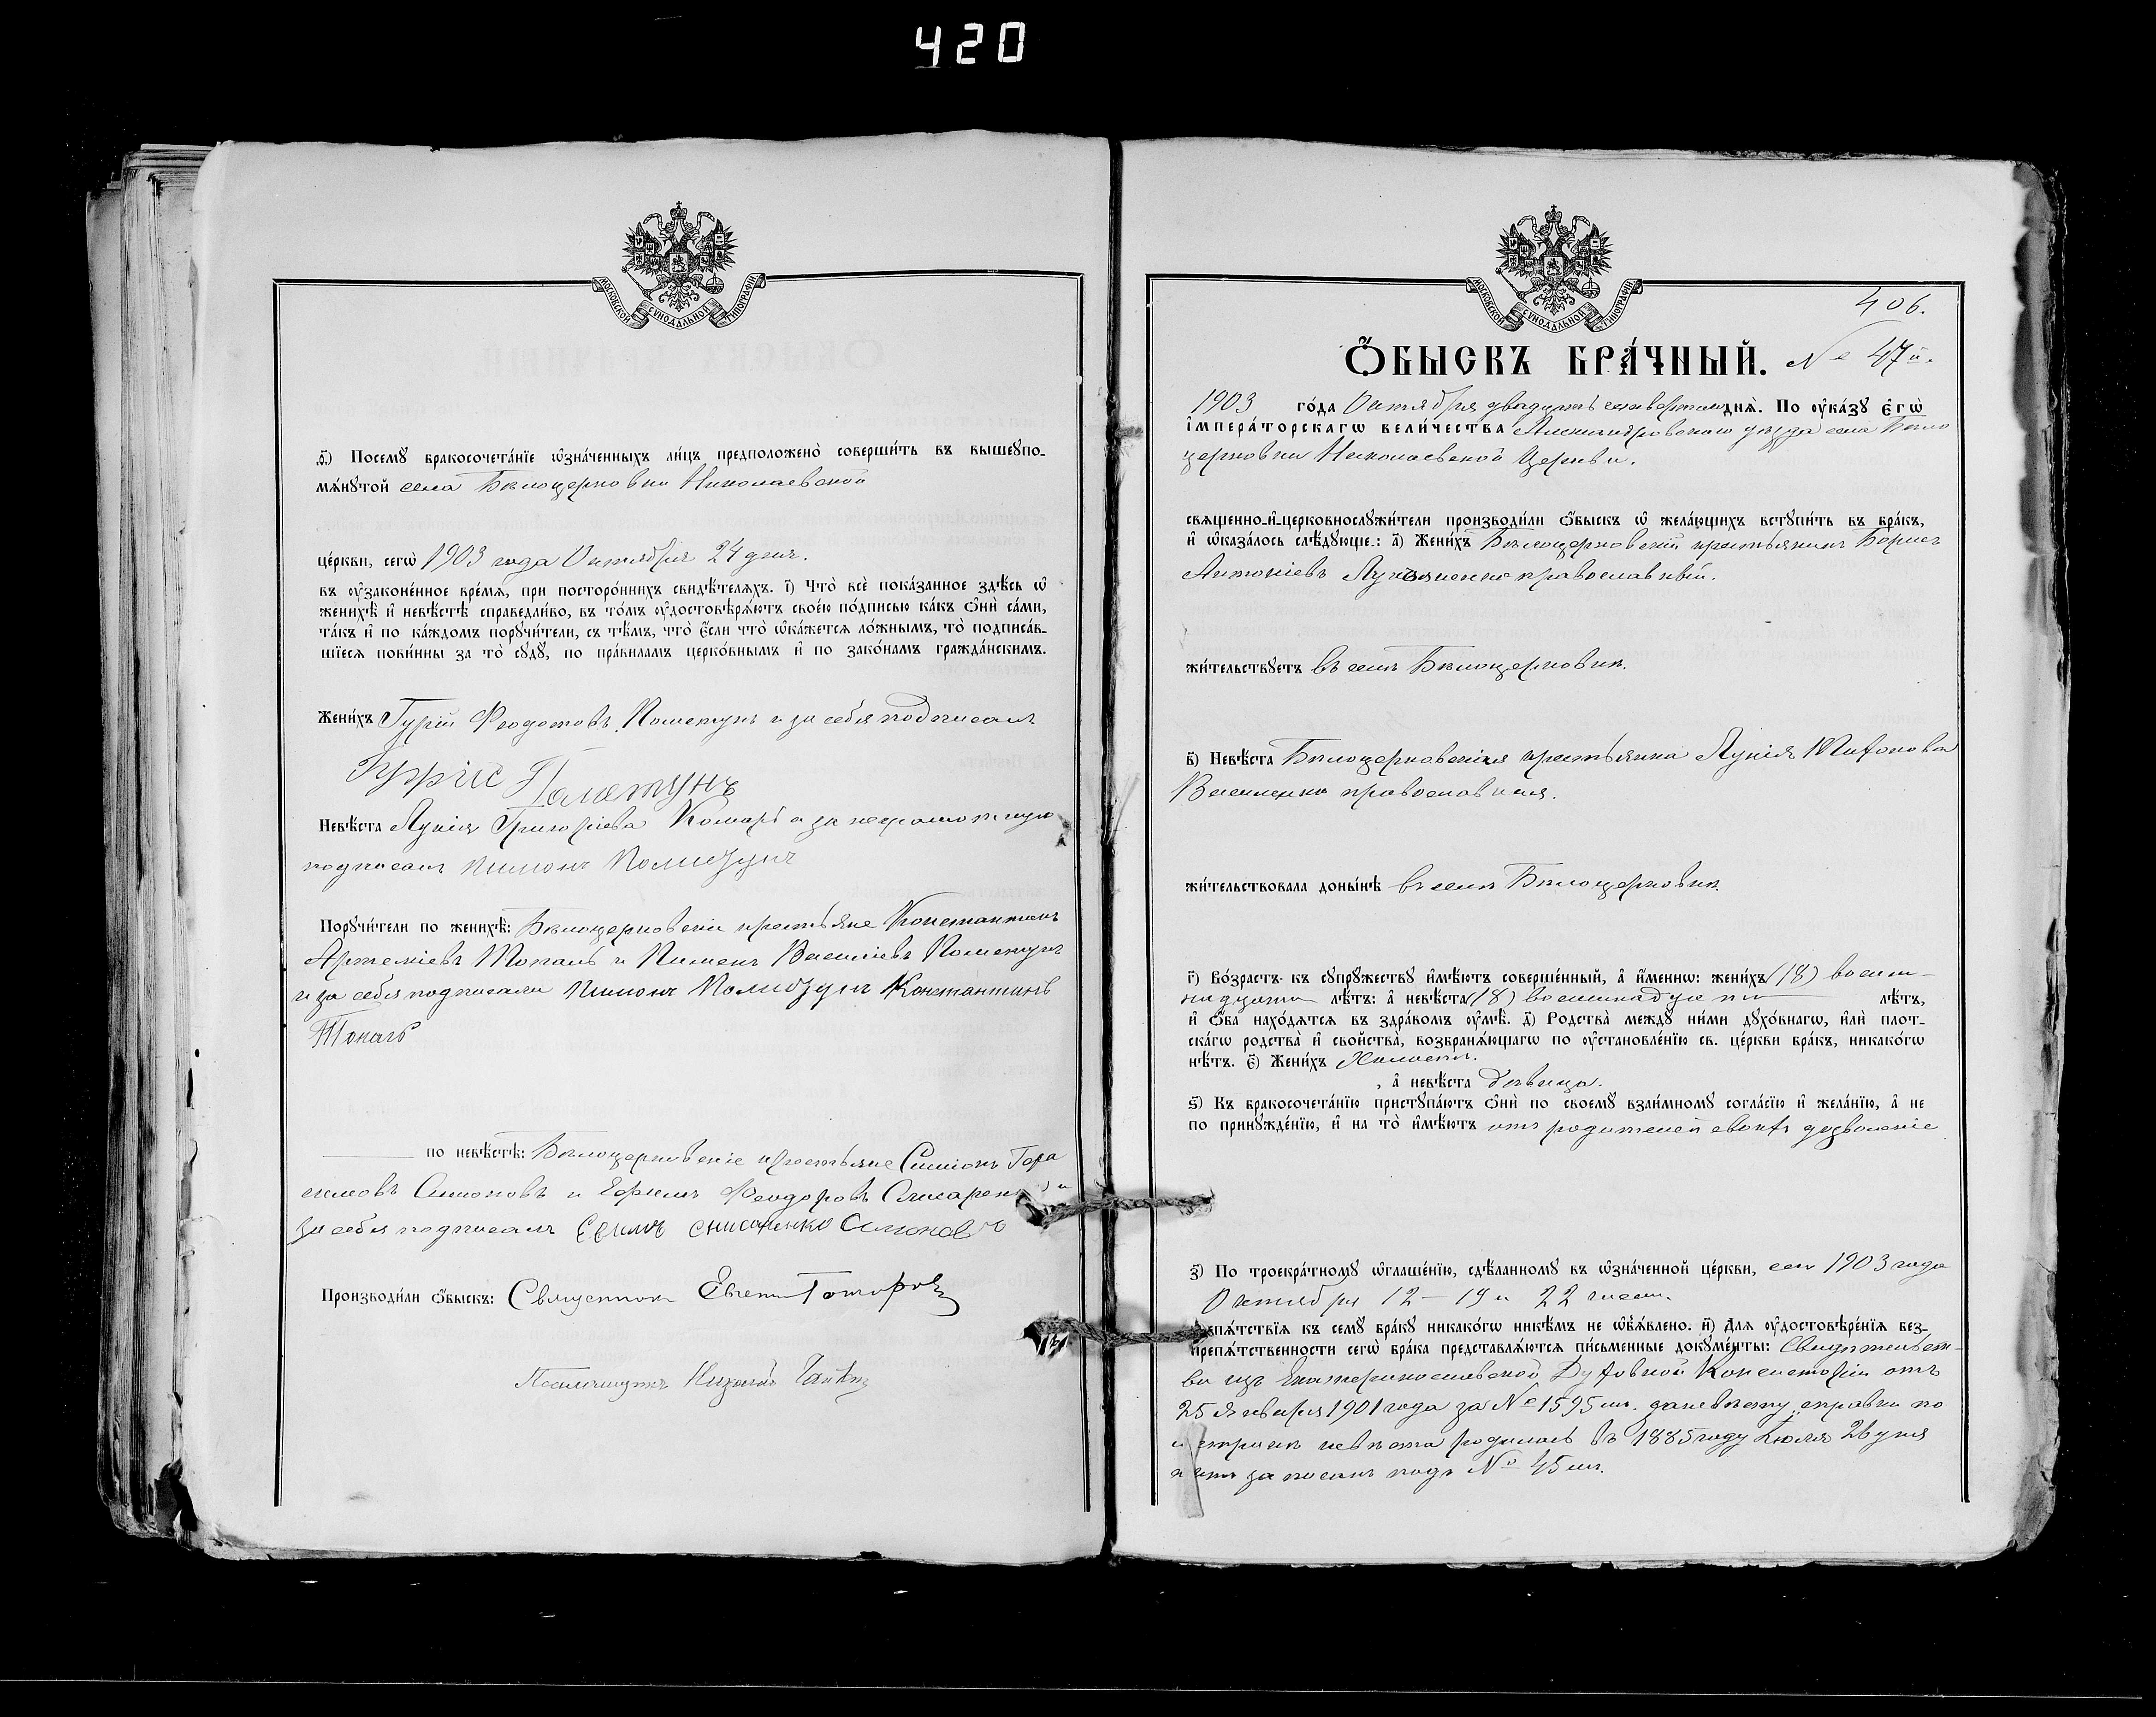 420
МОСКОВСКОЙ СУНОДАЛЬНОЙ ТИПОГРАФІИ
ѳ҃) Посемꙋ бракосочета́нїе ѡ҆зна́ченныхъ ли́цъ предположено̀ соверши́ть въ вышеꙋпо-
мѧ́нꙋтой села Бѣлоцерковки Николаевской
це́ркви, сегѡ̀ 1903 года Октября 24 дня.
въ ᲂу҆зако́ненное вре́мѧ, при посторо́ннихъ свидѣ́телѧхъ. і҃) Что̀ всѐ пока́занное здѣ́сь ѡ҆
женихѣ̀ и҆ невѣ́стѣ справедли́во, въ то́мъ ᲂу҆достовѣрѧ́ютъ свое́ю по́дписью ка́къ ѻ҆нѝ са́ми,
та́къ и҆ по ка́ждомъ порꙋчи́тели, съ тѣ́мъ, что̀ є҆́сли что̀ ѡ҆ка́жется ло́жнымъ, то̀ подписа́в-
шїеся пови́нны за то̀ сꙋдꙋ̀, по пра́виламъ церко́внымъ и҆ по зако́намъ гражда́нскимъ.
Жени́хъ Гурій Феодотовъ Пометунъ и за себя подписалъ
Гуррій Пометунъ
Невѣ́ста Лукія Григоріева Комаръ а за неграмотную
подписалъ Пимонъ
Порꙋчи́тели по женихѣ̀: Бѣлоцерковскіи крестьяне Константинъ
Артеміевъ Топалъ и Пименъ Василіевъ Пометунъ
и за себя подписали Пимонъ Константинъ
Топалъ
по невѣ́стѣ: Бѣлоцерковскіе крестьяне Симіонъ Гера
симовъ Симоновъ и Ефимъ Феодоровъ
за себя подписали Ефимъ
Производи́ли ѻ҆́быскъ: Священникъ
Псаломщикъ
МОСКОВСКОЙ СУНОДАЛЬНОЙ ТИПОГРАФІИ
406.
Ѻ҆́БЫСКЪ БРА́ЧНЫЙ. № 47й.
1903 го́да Октября двадцать четвертаго днѧ̀. По ᲂу҆ка́зꙋ є҆гѡ̀
і҆мпера́торскагѡ вели́чества Александровскаго уѣзда села Бѣло
церковки Николаевской Церкви.
свѧще́нно-и҆-церковнослꙋжи́тели производи́ли ѻ҆́быскъ ѡ҆ жела́ющихъ встꙋпи́ть въ бра́къ,
и҆ ѡ҆каза́лось слѣ́дꙋющее: а҃) Жени́хъ Бѣлоцерковскій крестьянинъ Борисъ
Антоніевъ Лукъяненко православный.
жи́тельствꙋетъ въ селѣ Бѣлоцерковкѣ.
в҃) Невѣ́ста Бѣлоцерковская крестьянка Лукія Тихонова
Василенко православная.
жи́тельствовала доны́нѣ въ селѣ Бѣлоцерковкѣ.
г҃) Во́зрастъ къ сꙋпрꙋ́жествꙋ и҆мѣ́ютъ соверше́нный, а҆ и҆́менно: жени́хъ (18) восем-
надцати лѣ́тъ: а҆ невѣ́ста (18) восемнадцати лѣ́тъ,
и҆ ѻ҆́ба нахо́дѧтсѧ въ здра́вомъ ᲂу҆мѣ̀. д҃) Родства̀ междꙋ ни́ми дꙋхо́внагѡ, и҆лѝ плот-
ска́гѡ родства̀ и҆ сво́йства, возбранѧ́ющагѡ по ᲂу҆становле́нїю св. це́ркви бра́къ, никако́гѡ
нѣ́тъ. є҃) Жени́хъ Холостъ.
, а҆ невѣ́ста Дѣвица.
ѕ҃) Къ бракосочета́нїю пристꙋпа́ютъ ѻ҆нѝ по своемꙋ̀ взаи́мномꙋ согла́сїю и҆ жела́нїю, а҆ не
по принꙋжде́нїю, и҆ на то̀ и҆мѣ́ютъ отъ родителей своихъ дозволеніе
з҃) По троекра́тномꙋ ѡ҆глаше́нїю, сдѣ́ланномꙋ въ ѡ҆зна́ченной це́ркви, сего 1903 года
Октября 12 – 19 и 22 чиселъ.
препѧ́тствїя къ семꙋ̀ бра́кꙋ никако́гѡ никѣ́мъ не ѡ҆б̾ѧ́влено. и҃) Для ᲂу҆достовѣре́нїя без-
препѧ́тственности сегѡ̀ бра́ка представлѧ́ются пи́сьменные докꙋме́нты: Свидѣтельст-
во изъ Екатеринославской Духовной Консисторіи отъ
25 Января 1901 года за № 1595 мъ. даневѣсту справки по
метрикѣ невѣста родилась въ 1885 году Іюля 26 дня
актъ записанъ подъ № 45 мъ.